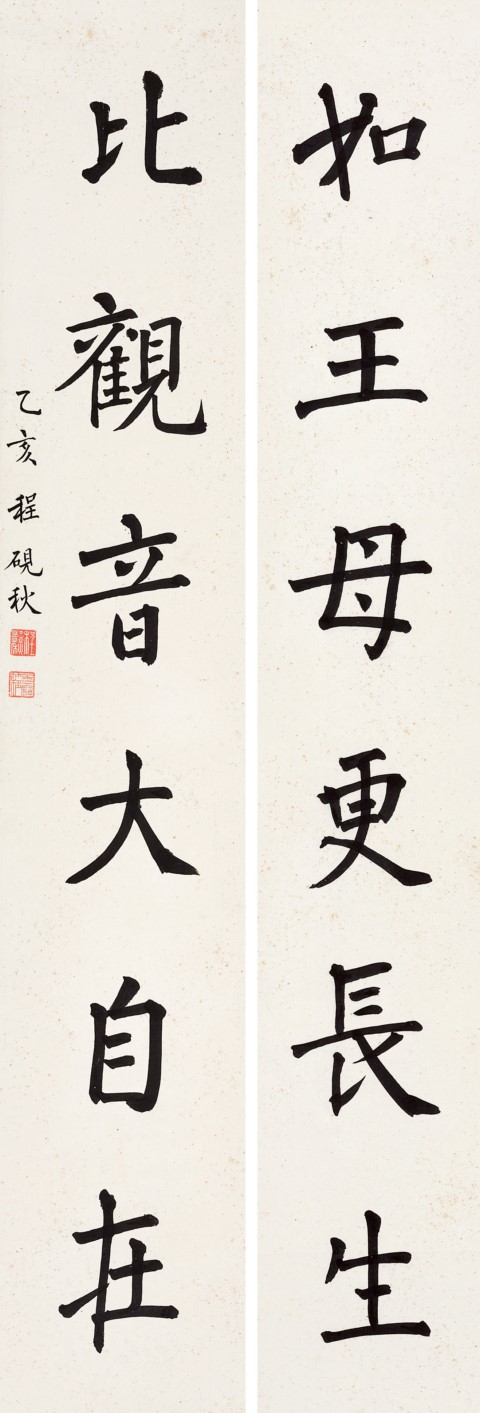 如王母更長生
比觀音大自在
乙亥 程硯秋